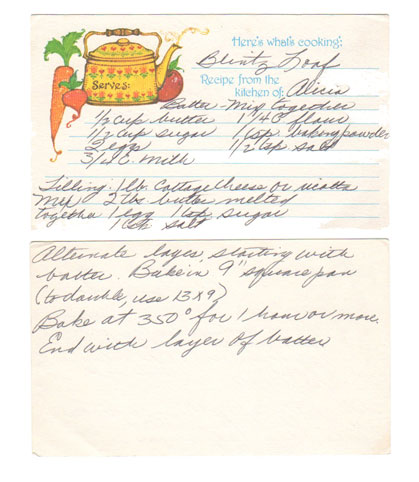 Here's what's cooking:
Blintz Loaf
Recipe from the kitchen of: Alicia
Serves:
Batter - Mix together
1/2 cup butter 1 1/4 C flour
1/2 cup sugar 1 tsp baking powder
3 eggs 1/2 tsp salt
3/4 C. milk
Filling: 1 lb. Cottage Cheese or ricotta
Mix 2 tbs butter melted
together 1 egg 1 tsp sugar
1 tsp salt
Alternate layers, starting with
batter. Bake in 9" square pan
(to double, use 13 x 9)
Bake at 350° for 1 hour or more.
End with layer of batter